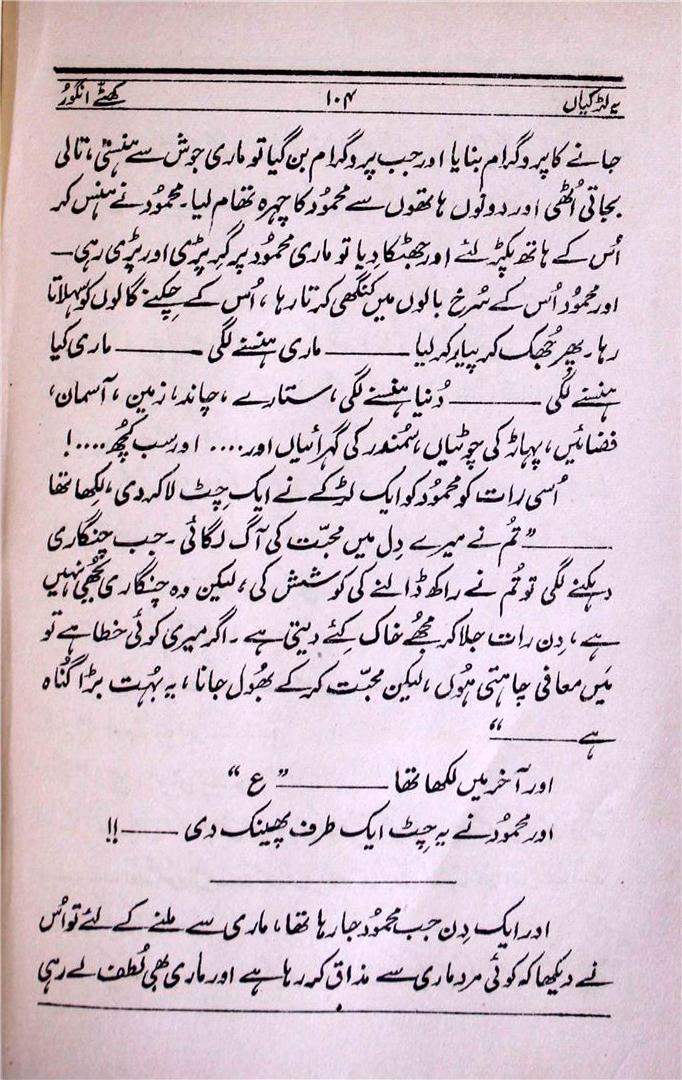 یہ لڑکیاں ۱۰۴ کھٹے انگور
جانے کا پروگرام بنایا اور جب پروگرام بن گیا تو ماری جوش سے ہنستی، تالی
بجاتی اُٹھی اور دونوں ہاتھوں سے محمود کا چہرہ تھام لیا۔ محمود نے ہنس کر
اُس کے ہاتھ پکڑ لئے اور جھٹکا دیا تو ماری محمود پر گر پڑی اور پڑی رہی —
اور محمود اُس کے سُرخ بالوں میں کنگھی کرتا رہا، اُس کے چکنے گالوں کو سہلاتا
رہا۔ پھر جُھک کر پیار کر لیا ——— ماری ہنسنے لگی ——— ماری کیا
ہنسنے لگی ——— دُنیا ہنسنے لگی، ستارے، چاند، زمین، آسمان،
فضائیں، پہاڑ کی چوٹیاں، سمُندر کی گہرائیاں اور.... اور سب کُچھ....!
اُسی رات کو محمود کو ایک لڑکے نے ایک چِٹ لا کر دی، لکھا تھا
——— ”تُم نے میرے دِل میں محبّت کی آگ لگائی۔ جب چنگاری
دہکنے لگی تو تُم نے راکھ ڈالنے کی کوشش کی، لیکن وہ چنگاری بجھی نہیں
ہے، دِن رات جلا کر مجُھے خاک کئے دیتی ہے۔ اگر میری کوئی خطا ہے تو
مَیں معافی چاہتی ہُوں، لیکن محبّت کر کے بھُول جانا، یہ بُہت بڑا گُناہ
ہے ———“
اور آخر میں لکھا تھا ——— ”ع“
اور محمود نے یہ چِٹ ایک طرف پھینک دی ——!!
اور ایک دِن جب محمود جا رہا تھا، ماری سے ملنے کے لئے تو اُس
نے دیکھا کہ کوئی مرد ماری سے مذاق کر رہا ہے اور ماری بھی لُطف لے رہی